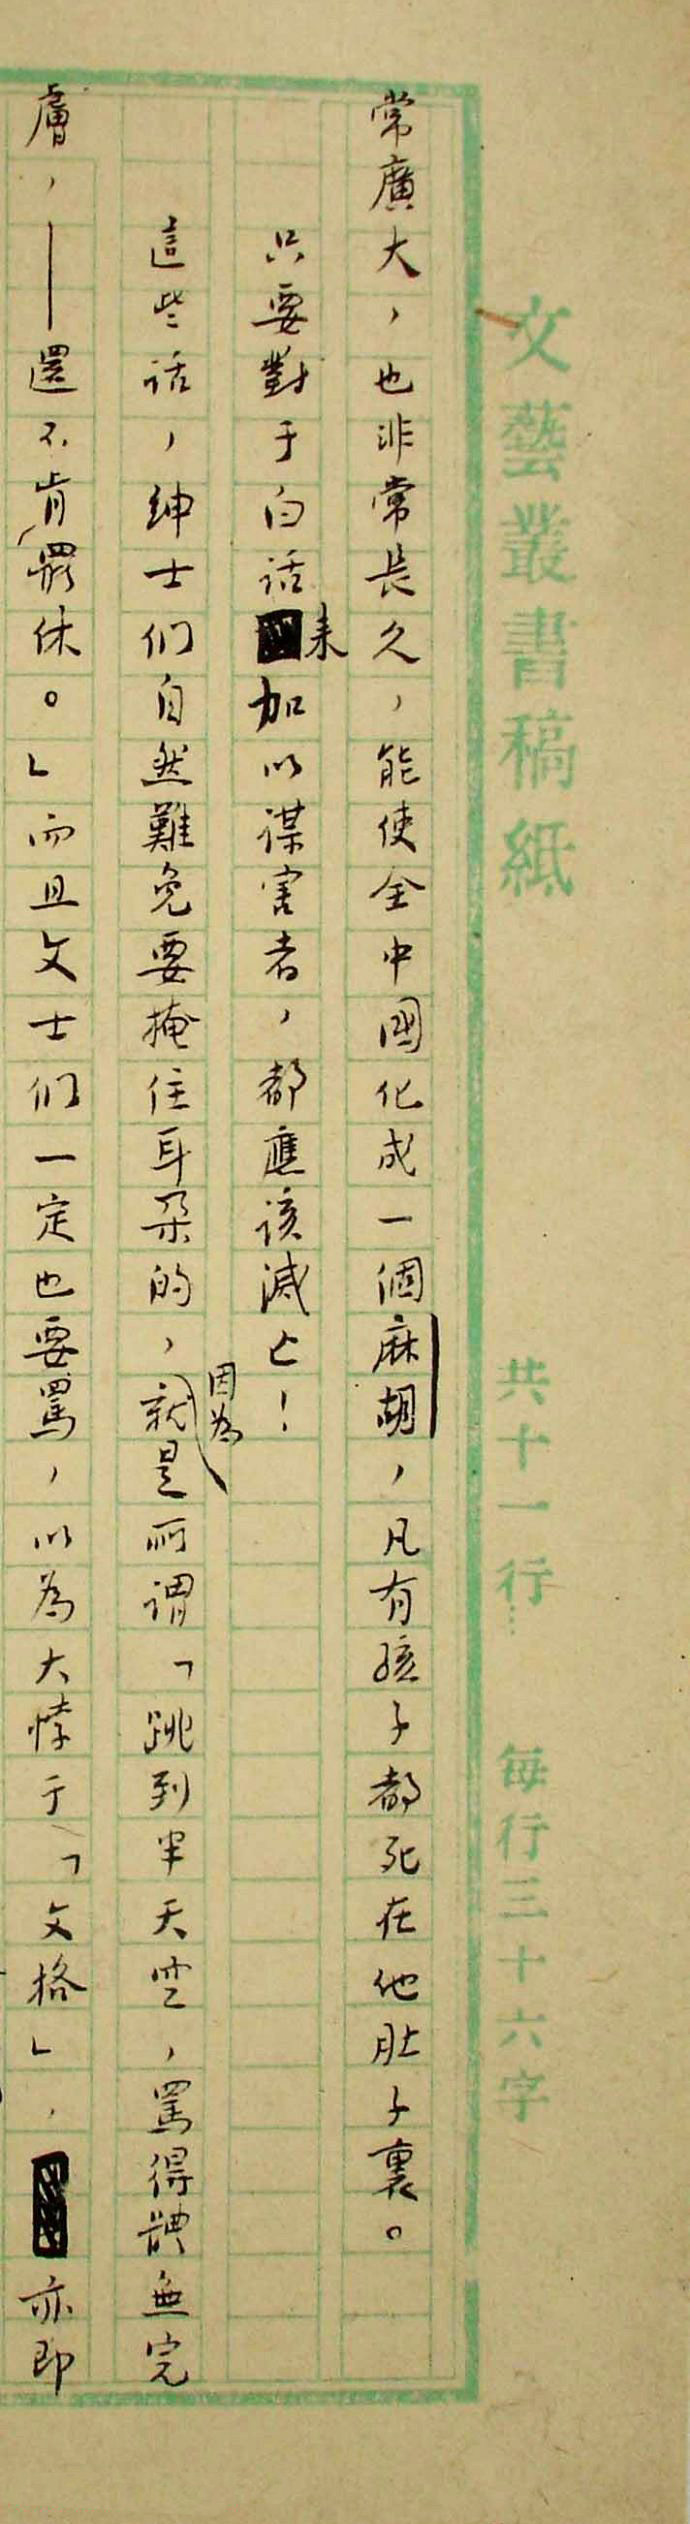 文藝叢書稿紙
共十一行…
每行三十六字
常廣大，也非常長久，能使全中國化成一個麻胡，凡有孩子都死在他肚子裏。
只要對于白話来加以謀害者，都應該滅亡！
這些話，紳士们自然難免要掩住耳朵的，因為就是所謂「跳到半天空，罵得體無完
膚，——還不肯罷休。」而且文士们一定也要罵，以為大悖于「文格」，亦即